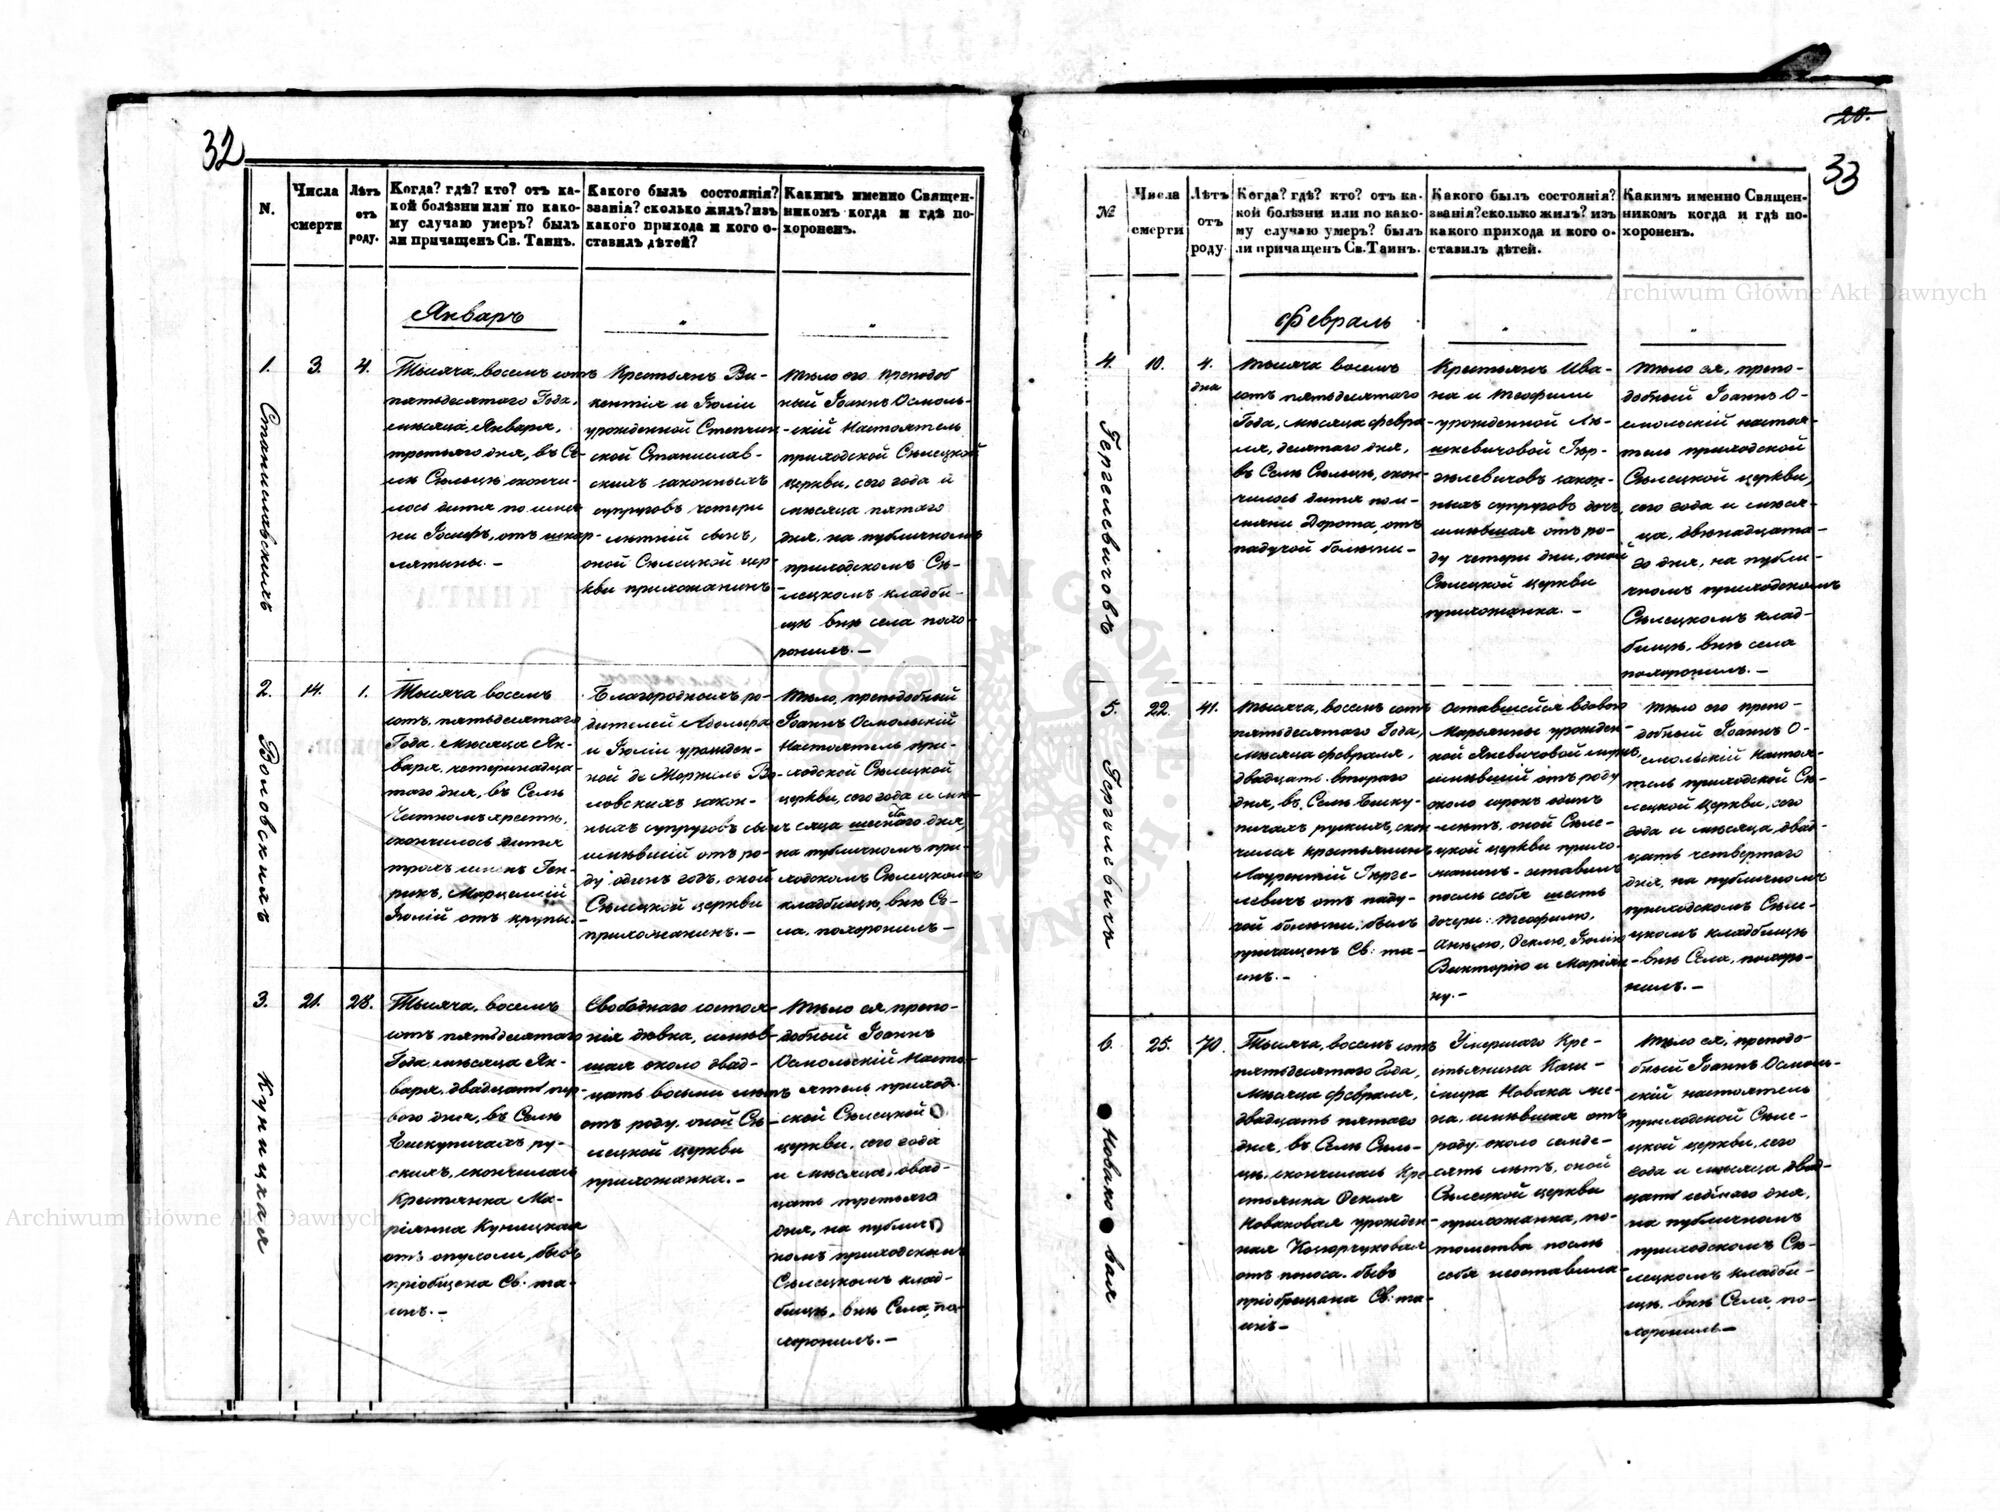 32
N.
Числа
смерти
Лѣтъ
отъ
роду.
Когда? гдѣ? кто? отъ ка-
кой болѣзни или по како-
му случаю умеръ? былъ
ли причащенъ Св. Таинъ.
Какого былъ состоянія?
званія? сколько жилъ? изъ
какого прихода и кого о-
ставилъ дѣтей?
Какимъ именно Священ-
никомъ когда и гдѣ по-
хороненъ.
Январъ
1.
Станиславскихъ
3.
4.
Тысяча, восемь сотъ
пятьдесятаго Года,
мѣсяца, Января,
третьяго дня, въ Се-
лѣ Сѣльцѣ скончи-
лось дитя по име-
ни Іосифъ, отъ шкар-
лятыны. –
Крестьянъ Ви-
кентія и Юліи
урожденной Степчин-
ской Станислав-
скихъ законныхъ
супруговъ четери
лѣтній сынъ,
оной Сѣлецкой цер-
кви прихожанинъ
Тѣло его преподоб
ный Іоаннъ Осмоль-
скій Настоятель
приходской Сѣлецкой
церкви, сего года и
мѣсяца пятаго
дня, на публичномъ
приходскомъ Сѣ-
лецкомъ кладби-
щѣ внѣ села похо-
ронилъ. –
2.
Воловскихъ
14.
1.
Тысяча восемь
сотъ, пятьдесятаго
Года. Мѣсяца Ян-
варя, четеринадца-
таго дня, въ Селѣ
скончилось дитя
трохъ именъ Ген-
рикъ, Марцеллій
Юлій отъ крупы.
Благородныхъ ро-
дителей
и Юліи урожден-
ной де Моржель Во-
ловскихъ закон-
ныхъ супруговъ сынъ
имѣвшій отъ ро-
ду одинъ годъ, оной
Сѣлецкой церкви
прихожанинъ. –
Тѣло, преподобный
Іоаннъ Осмольскій
Настоятель при-
ходской Сѣлецкой
церкви, сего года и мѣ-
сяца шеснаго дня,
на публичномъ при-
ходскомъ Сѣлецкомъ
кладбищѣ, внѣ Се-
ла, похоронилъ –
3.
Куницкая
21.
28.
Тысяча, восемь
сотъ пятьдесятаго
Года, мѣсяца Ян-
варя, двадцать пер-
вого дня, въ Селѣ
Бискупичахъ ру-
скихъ, скончилась
Крестянка Ма-
ріянна Куницкая
отъ опухоли, бывъ
пріобщена Св. та-
инъ. –
Свободнаго состоя-
нія дѣвка, имѣв-
шая около двад-
цать восьми лѣтъ
отъ роду. оной Сѣ-
лецкой церкви
прихожанка. –
Тѣло ея, препо-
добный Іоаннъ
Осмольскій Насто-
ятель приход-
ской Сѣлецкой
церкви, сего года
и мѣсяца, двад-
цать третьяго
дня, на публич-
номъ приходскомъ
Сѣлецкомъ клад-
бищѣ, внѣ Села, по-
хоронилъ. –
20.
33
№
Числа
смерти
Лѣтъ
отъ
роду
Когда? гдѣ? кто? отъ ка-
кой болѣзни или по како-
му случаю умеръ? былъ
ли причащенъ Св. Таинъ.
Какого былъ состоянія?
званія? сколько жилъ? изъ
какого прихода и кого о-
ставилъ дѣтей.
Какимъ именно Священ-
никомъ когда и гдѣ по-
хороненъ.
Февраль
4.
Гергелевичовъ
10.
4.
дна
Тысяча восемь
сотъ пятьдесятаго
Года, мѣсяца февра-
ля, десятаго дня,
въ Селѣ Сѣльцѣ, скон-
чилось дитя по и-
мяни Дорота, отъ
падучой болѣзни –
Крестьянъ Ива-
на и Теофили
урожденной Лю-
шкевичовой Гер-
гелевичовъ закон-
ныхъ супруговъ дочь,
имѣвшая отъ ро-
ду четери дни, оной
Сѣлецкой церкви
прихожанка. –
Тѣло ея, препо-
добный Іоаннъ О-
смольскій настоя-
тель приходской
Сѣлецкой церкви,
сего года и мѣся-
ца, двенадцата-
го дня, на публи-
чномъ приходскомъ
Сѣлецкомъ клад-
бищѣ, внѣ села
похоронилъ. –
5.
Гергелевичъ
22.
41.
Тысяча, восемь сотъ
пятьдесятаго Года,
мѣсяца февраля,
двадцать втораго
дня, въ Селѣ Биску-
пичахъ рускихъ, скон-
чился крестьянинъ
Лаурентій Герге-
левичъ отъ паду-
чой болѣзни, былъ
причащенъ Св: та-
инъ. –
Оставшейся вдовою
Марьянны урожден-
ной Яневичовой мужъ,
имѣвшій отъ роду
около сорокъ одинъ
лѣтъ, оной Сѣле-
цкой церкви прихо-
жанинъ – оставилъ
послѣ себя шесть
дочери: Теофилю,
Анълю, Феклю, Юлію
Викторію и Маріян-
ну. –
Тѣло его препо-
добный Іоаннъ О-
смольскій Настоя-
тель приходской Сѣ-
лецкой церкви, сего
года и мѣсяца, двад-
цать четвертаго
дня, на публичномъ
приходскомъ Сѣле-
цкомъ кладбищѣ
внѣ Села, похоро-
нилъ. –
6
Новаковая
25.
70.
Тысяча, восемь сотъ
пятьдесятаго Года,
Мѣсяца февраля,
двадцать пятаго
дня, въ Селѣ Сѣль-
цѣ, скончилась Кре-
стьянка Фекля
Новаковая урожден-
ная Коцюрчуковая
отъ поноса. бывъ
пріобрещана Св: та-
инъ –
Умершаго Кре-
стьянина Кази-
мира Новака же-
на, имѣвшая отъ
роду около семде-
сятъ лѣтъ, оной
Сѣлецкой церкви
прихожанка, по-
томства послѣ
себя неоставила
Тѣло ея, преподо-
бный Іоаннъ Осмоль-
скій настоятель
приходской Сѣле-
цкой церкви, сего
года и мѣсяца двад-
цать седмаго дня,
на публичномъ
приходскомъ Сѣ-
лецкомъ кладби-
щѣ. внѣ Села, по-
хоронилъ –
Archiwum Główne Akt Dawnych
Archiwum Główne Akt Dawnych